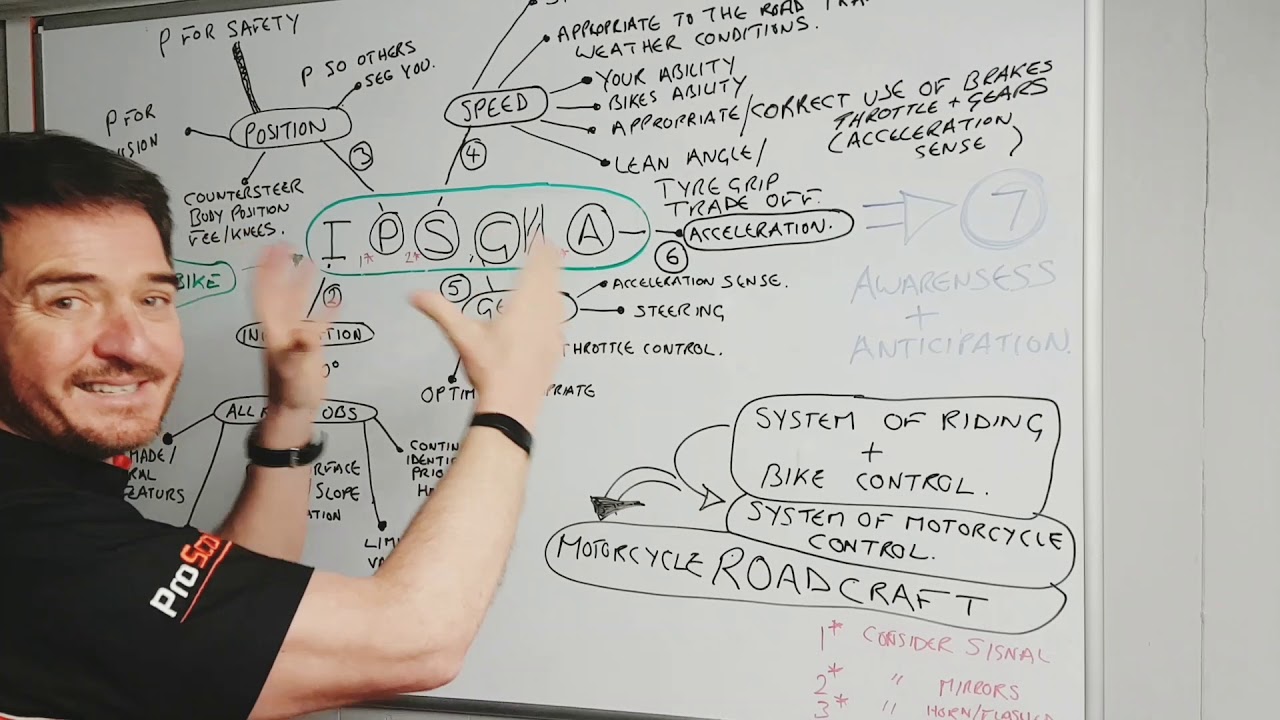 P FOR SAFETY
P SO OTHERS
SEE YOU.
P FOR
POSITION
COUNTERSTEER
BODY POSITION
FEE/KNEES.
3
SPEED
4
APPROPRIATE TO THE ROAD
WEATHER CONDITIONS.
YOUR ABILITY
BIKES ABILITY
APPROPRIATE/CORRECT USE OF BRAKES
THROTTLE + GEARS
(ACCELERATION
SENSE)
LEAN ANGLE/
TYRE GRIP
TRADE OFF.
I P S G A
1* 2*
ACCELERATION.
6
7
AWARENSESS
+
ANTICIPATION.
BIKE
2
5
ACCELERATION SENSE.
STEERING
THROTTLE CONTROL.
ALL OBS
MADE/
SLOPE
SYSTEM OF RIDING
+
BIKE CONTROL.
SYSTEM OF MOTORCYCLE
CONTROL.
MOTORCYCLE ROADCRAFT
1* CONSIDER SISNAL
2* " MIRRORS
3* " HORN/FLASHER
ProSco